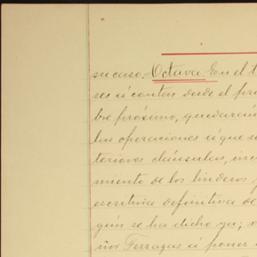 su caso. Octava. En el t
ses á contar desde el pri
bre próximo, quedarán
las operaciones á que se
teriores cláusulas, in
miento de los linderos
escritura definitiva de
gún se ha dicho ya;
ños Terragas á poner